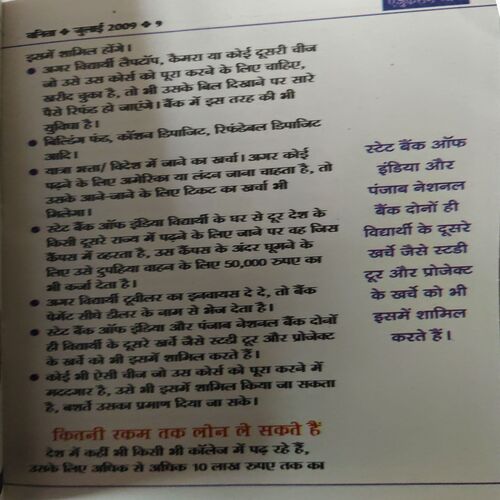 वनिता ❖ जुलाई 2009 ❖ 9
इसमें शामिल होंगे।
● अगर विद्यार्थी लैपटॉप, कैमरा या कोई दूसरी चीज
जो उसे उस कोर्स को पूरा करने के लिए चाहिए,
खरीद चुका है, तो भी उसके बिल दिखाने पर सारे
पैसे रिफंड हो जाएंगे। बैंक में इस तरह की भी
सुविधा है।
● बिल्डिंग फंड, कॉशन डिपाजिट, रिफंडेबल डिपाजिट
आदि।
● यात्रा भत्ता/ विदेश में जाने का खर्चा। अगर कोई
पढ़ने के लिए अमेरिका या लंदन जाना चाहता है, तो
उसके आने-जाने के लिए टिकट का खर्चा भी
मिलेगा।
● स्टेट बैंक ऑफ इंडिया विद्यार्थी के घर से दूर देश के
किसी दूसरे राज्य में पढ़ने के लिए जाने पर वह जिस
कैंपस में ठहरता है, उस कैंपस के अंदर घूमने के
लिए उसे दुपहिया वाहन के लिए 50,000 रुपए का
भी कर्जा देता है।
● अगर विद्यार्थी टूवीलर का इनवायस दे दे, तो बैंक
पेमेंट सीधे डीलर के नाम से भेज देता है।
● स्टेट बैंक ऑफ इंडिया और पंजाब नेशनल बैंक दोनों
ही विद्यार्थी के दूसरे खर्चे जैसे स्टडी टूर और प्रोजेक्ट
के खर्चे को भी इसमें शामिल करते हैं।
● कोई भी ऐसी चीज जो उस कोर्स को पूरा करने में
मददगार है, उसे भी इसमें शामिल किया जा सकता
है, बशर्ते उसका प्रमाण दिया जा सके।
कितनी रकम तक लोन ले सकते हैं
देश में कहीं भी किसी भी कॉलेज में पढ़ रहे हैं,
उसके लिए अधिक से अधिक 10 लाख रुपए तक का
स्टेट बैंक ऑफ
इंडिया और
पंजाब नेशनल
बैंक दोनों ही
विद्यार्थी के दूसरे
खर्चे जैसे स्टडी
टूर और प्रोजेक्ट
के खर्चे को भी
इसमें शामिल
करते हैं।